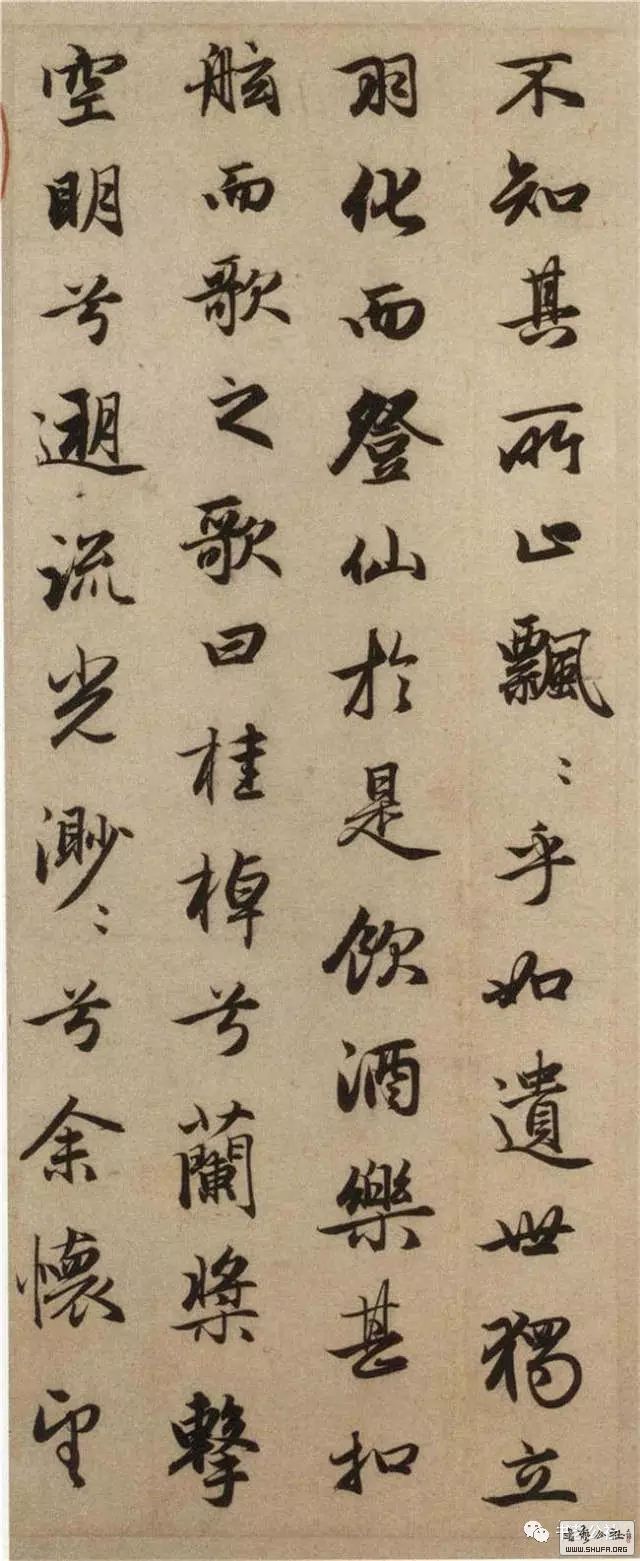 不知其所止飄〻乎如遺世獨立
羽化而登仙於是飲酒樂甚扣
舷而歌之歌曰桂棹兮蘭槳擊
空明兮遡流光渺〻兮余懷望
WWW.SHUFA.ORG